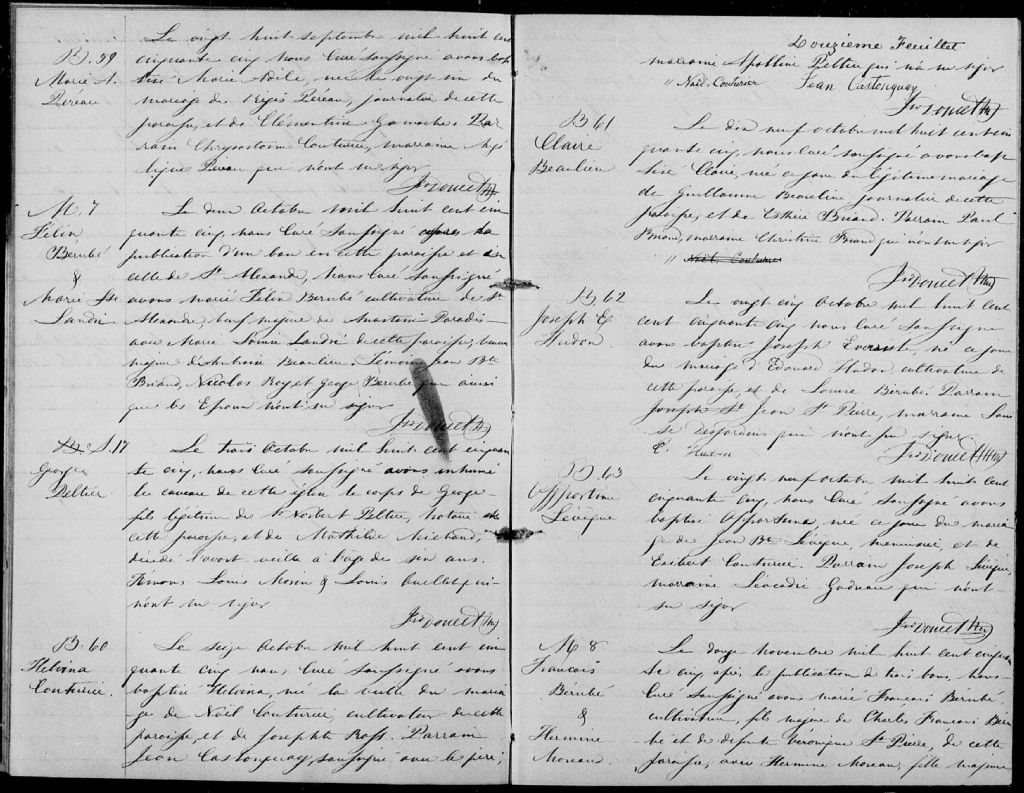 B. 59
Marie A.
Pereau
Le vingt huit septembre mil huit cent
cinquante cinq, nous Curé soussigné avons bap
tisé Marie Adile, née le vingt un du
mariage de Régis Pereau, journalier de cette
paroisse, et de Clémentine Gamache. Par
rain Chrysostome Couturier, marraine Angé
lique Pereau qui n'ont su signer
Jos Doucet Ptre
M. 7
Félix
Bérubé
&
Marie Lse
Landri
Le deux Octobre mil huit cent cin
quante cinq, nous Curé soussigné après la
publication d'un ban en cette paroisse et en
celle de St. Alexandre, Nous Curé soussigné
avons marié Félix Bérubé cultivateur de St
Alexandre, veuf majeur de Paradis
avec Marie Louise Landri de cette paroisse, veuve
majeure d'Antoine Beaulieu. Témoins Jean Bte
Briand, Nicolas Roy et George Bérubé qui ainsi
que les Epoux n'ont su signer
Jos Doucet Ptre
S. 17
George
Peltier
Le trois Octobre mil huit cent cinquan
te cinq, nous Curé soussigné avons inhumé
le caveau de cette église le corps de George
fils légitime de Norbert Peltier, notaire de
cette paroisse, et de Mathilde Michaud,
décédé l'avant veille à l'âge de six ans.
Témoins Louis Morin & Louis Ouellet qui
n'ont su signer
Jos Doucet Ptre
B. 60
Helvina
Couturier.
Le seize Octobre mil huit cent cin
quante cinq nous Curé soussigné avons
baptisé Helvina, née la veille du maria
ge de Noël Couturier, cultivateur de cette
paroisse, et de Josephte Ross. Parrain
Jean Castonguay, soussigné avec le père;
Douzième Feuillet
marraine Apolline Peltier qui n'a su signer
" Noël Couturier Jean Castonguay
Jos Doucet Ptre
B 61
Claire
Beaulieu
Le dix neuf octobre mil huit cent cin
quante cinq, nous Curé soussigné avons bap
tisé Claire, née ce jour du légitime mariage
de Guillaume Beaulieu journalier de cette
paroisse, et de Esthère Briand. Parrain Paul
Briand, marraine Christine Briand qui n'ont su signer
" Noël Couturier
Jos Doucet Ptre
B 62
Joseph E
Hudon
Le vingt cinq Octobre mil huit cent
cent cinquante cinq nous Curé soussigné
avons baptisé Joseph Evariste, né ce jour
du mariage d'Edouard Hudon, cultivateur de
cette paroisse, et de Louise Bérubé. Parrain
Joseph St Jean St Pierre, marraine Loui
se Desjardins qui n'ont su signer
E. Hudon Jos Doucet Ptre
B. 63
Opportune
Lévêque
Le vingt neuf octobre mil huit cent
cinquante cinq, nous Curé soussigné avons
baptisé Opportune, née ce jour du maria
ge de Jean Bte Lévêque, menuisier, et de
Couturier. Parrain Joseph Lévêque,
marraine Léocadie Gadreau qui n'ont
su signer
Jos Doucet Ptre
M 8
François
Bérubé
&
Hermine
Moreau.
Le douze novembre mil huit cent cinquan
te cinq après la publication de trois bans, Nous
Curé soussigné avons marié François Bérubé
cultivateur, fils majeur de Charles François Béru
bé et de défunte Véronique St Pierre, de cette
paroisse, avec Hermine Moreau, fille majeure